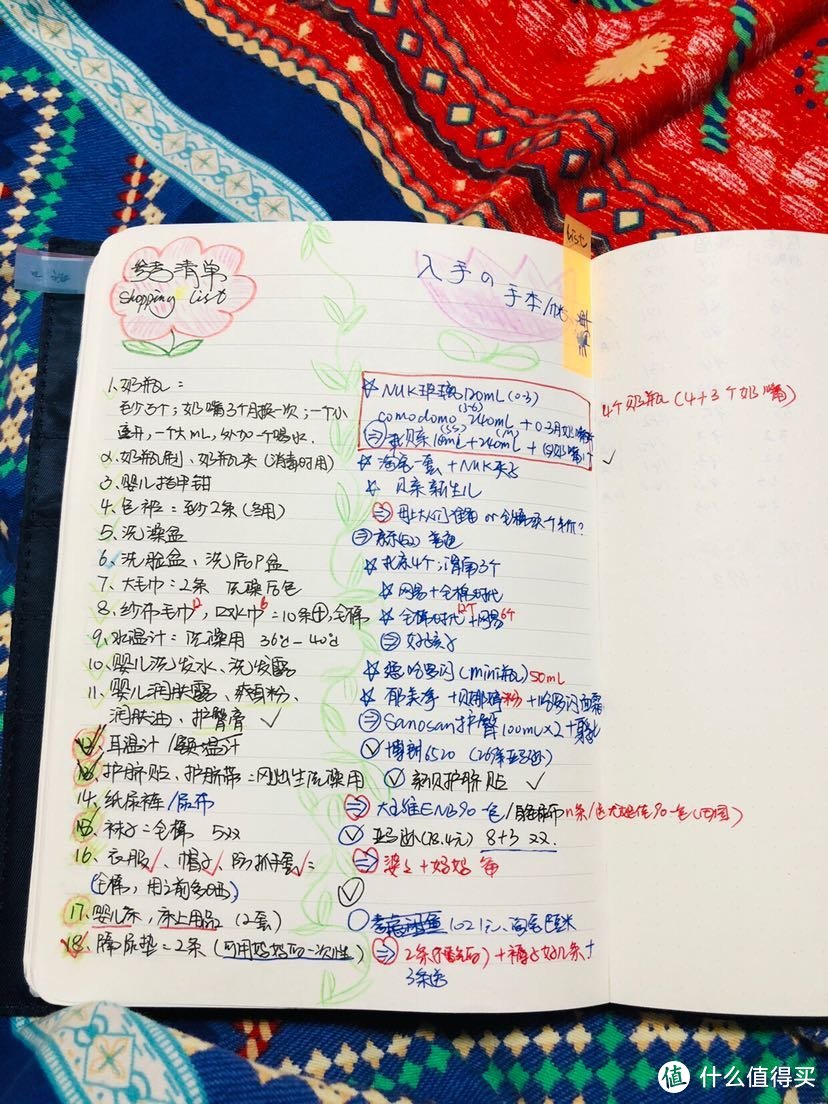 清单
shopping list
入手の
手本/
list
1.奶瓶:
至少3个;奶嘴3个月换一次;一个小
一个大mL,外加一个喝水.
2.奶瓶刷、奶瓶夹(消毒时用)
3.婴儿指甲钳
4.包被:至少2条(备用)
5.洗澡盆
6.洗脸盆、洗屁屁盆
7.大毛巾:2条 洗澡后包
8.纱布毛巾12,口水巾6:10条 全棉
9.水温计:洗澡用 36℃-40℃
10.婴儿洗发水、洗发露
11.婴儿润肤露、爽身粉、
润肤油、护臀膏 ✓
12.耳温计/额温计
13.护脐贴、护脐带:刚出生洗澡用
14.纸尿裤/尿布
15.袜子:全棉 5双
16.衣服、帽子、防抓手套:
(全棉,用之前多晒)
17.婴儿床,床上用品(2套)
18.隔尿垫:2条(可用妈妈的一次性)
☆NUK玻璃120mL(0-3)
comodomo(3-6)240mL+0-3月奶嘴
贝亲160mL(SS)+240mL(M)+
4个奶瓶(4+3个奶嘴)
☆淘宝一套+NUK夹子
☆贝亲新生儿
or全棉买个
☆北京4个;渭南3个
☆网易+全棉时代
☆全棉时代12个+网易6个
⇒好孩子
☆德哈罗闪(mini瓶)50mL
☆郁美净+贝娜婷粉+哈罗闪面霜
⇒Sanosan护臀100mL×2+
✓博朗6520(海淘亚马逊)
✓新贝护脐贴 ✓
⇒大王维ENB90一包/
✓亚马逊(78.4元)8+3双.
⇒婆婆+妈妈备
1021元、淘宝
⇒2条+褥子好几条+
3条送
值 什么值得买